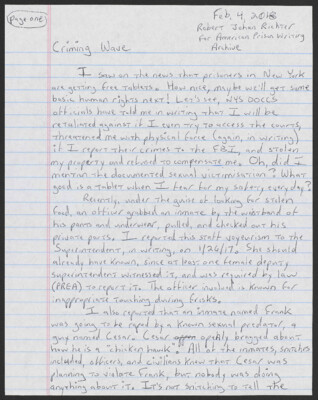 page one
Feb. 4, 2018
Robert Johan Richter
for American Prison Writing
Archive
Criming Wave
I saw on the news that prisoners in New York
are getting free tablets. How nice, maybe we'll get some
basic human rights next! Let's see, NYS DOCCS
officials have told me in writing that I will be
retaliated against if I even try to access the courts,
threatened me with physical force (again, in writing)
if I report their crimes to the FBI, and stolen
my property and refused to compensate me. Oh, did I
mention the documented sexual victimization? What
good is a tablet when I fear for my safety everyday?
Recently, under the guise of looking for stolen
food, an officer grabbed an inmate by the waistband of
his pants and underwear, pulled, and checked out his
private parts. I reported this staff voyeurism to the
Superintendent, in writing, on 1/26/17. She should
already have known, since at least one female deputy
superintendent witnessed it, and was required by law
(PREA) to report it. The officer involved is known for
inappropriate touching during frisks.
I also reported that an inmate named Frank
was going to be raped by a known sexual predator, a
guy named Cesar. Cesar openly bragged about
how he is a "chicken hawk". All of the inmates, snitches
included, officers, and civilians knew that Cesar was
planning to violate Frank, but nobody was doing
anything about it. It's not snitching to tell the